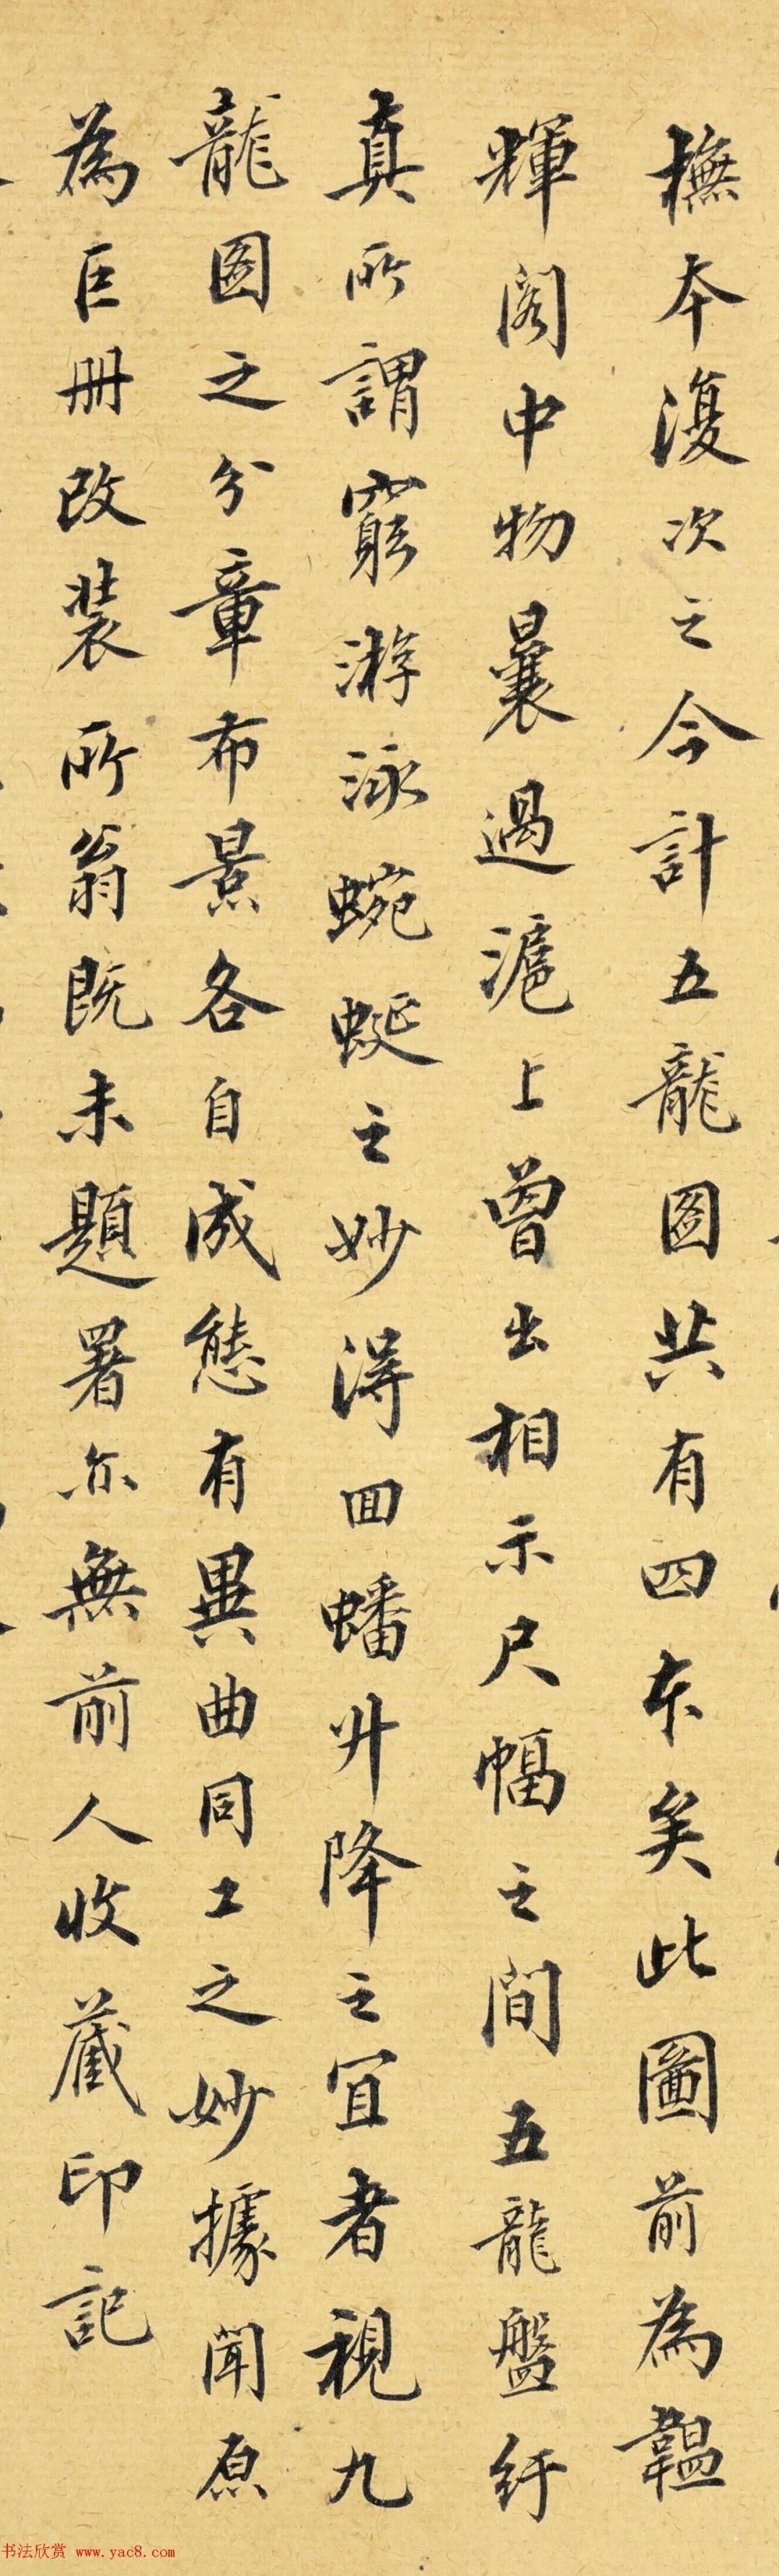 橅本復次之今計五龍圖共有四本矣此圖前為韞
輝閣中物曩過滬上曾出相示尺幅之間五龍盤紆
真所謂窮游泳蜿蜒之妙得回蟠升降之宜者視九
龍圖之分章布景各自成態有異曲同工之妙據聞原
為巨册改裝所翁既未題署亦無前人收藏印記
书法欣赏 www.yac8.com